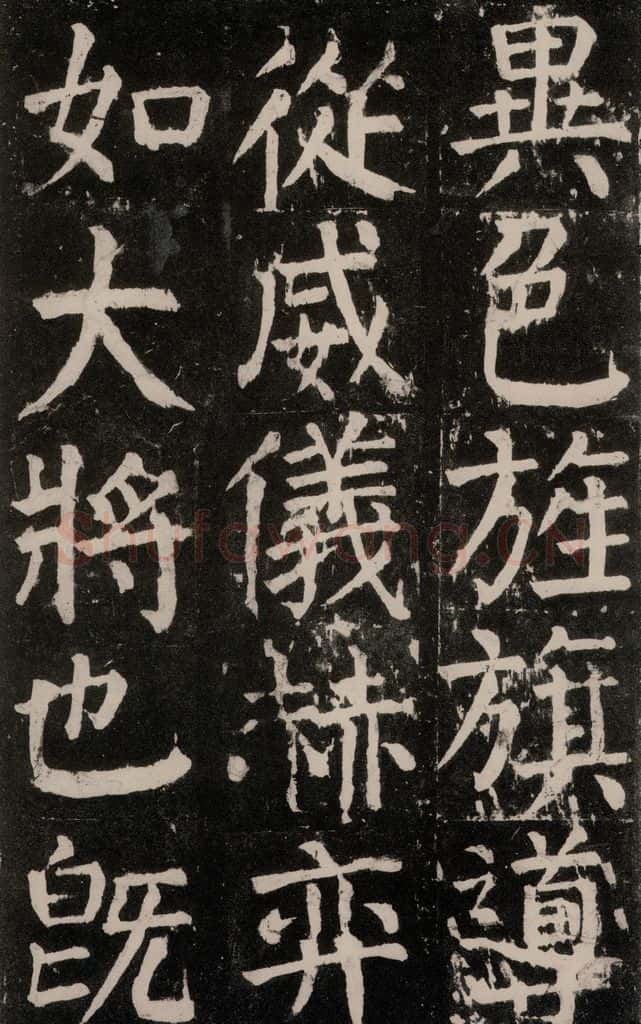 異色旌旗導
從威儀赫弈
如大將也既
Shufawang.CN